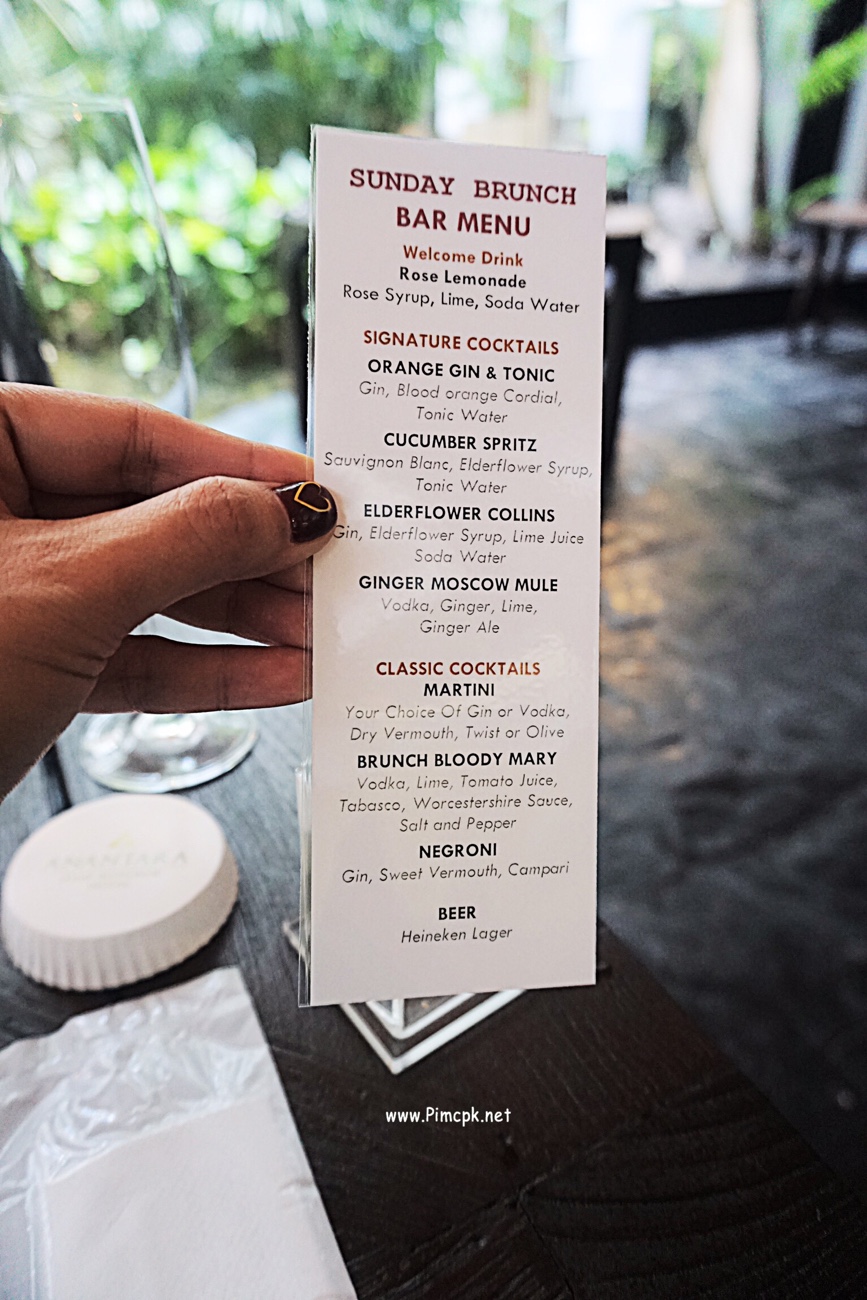 SUNDAY BRUNCH
BAR MENU
Welcome Drink
Rose Lemonade
Rose Syrup, Lime, Soda Water
SIGNATURE COCKTAILS
ORANGE GIN & TONIC
Gin, Blood orange Cordial,
Tonic Water
CUCUMBER SPRITZ
Sauvignon Blanc, Elderflower Syrup,
Tonic Water
ELDERFLOWER COLLINS
Gin, Elderflower Syrup, Lime Juice
Soda Water
GINGER MOSCOW MULE
Vodka, Ginger, Lime,
Ginger Ale
CLASSIC COCKTAILS
MARTINI
Your Choice Of Gin or Vodka,
Dry Vermouth, Twist or Olive
BRUNCH BLOODY MARY
Vodka, Lime, Tomato Juice,
Tabasco, Worcestershire Sauce,
Salt and Pepper
NEGRONI
Gin, Sweet Vermouth, Campari
BEER
Heineken Lager
ANANTARA
www.Pimcpk.net